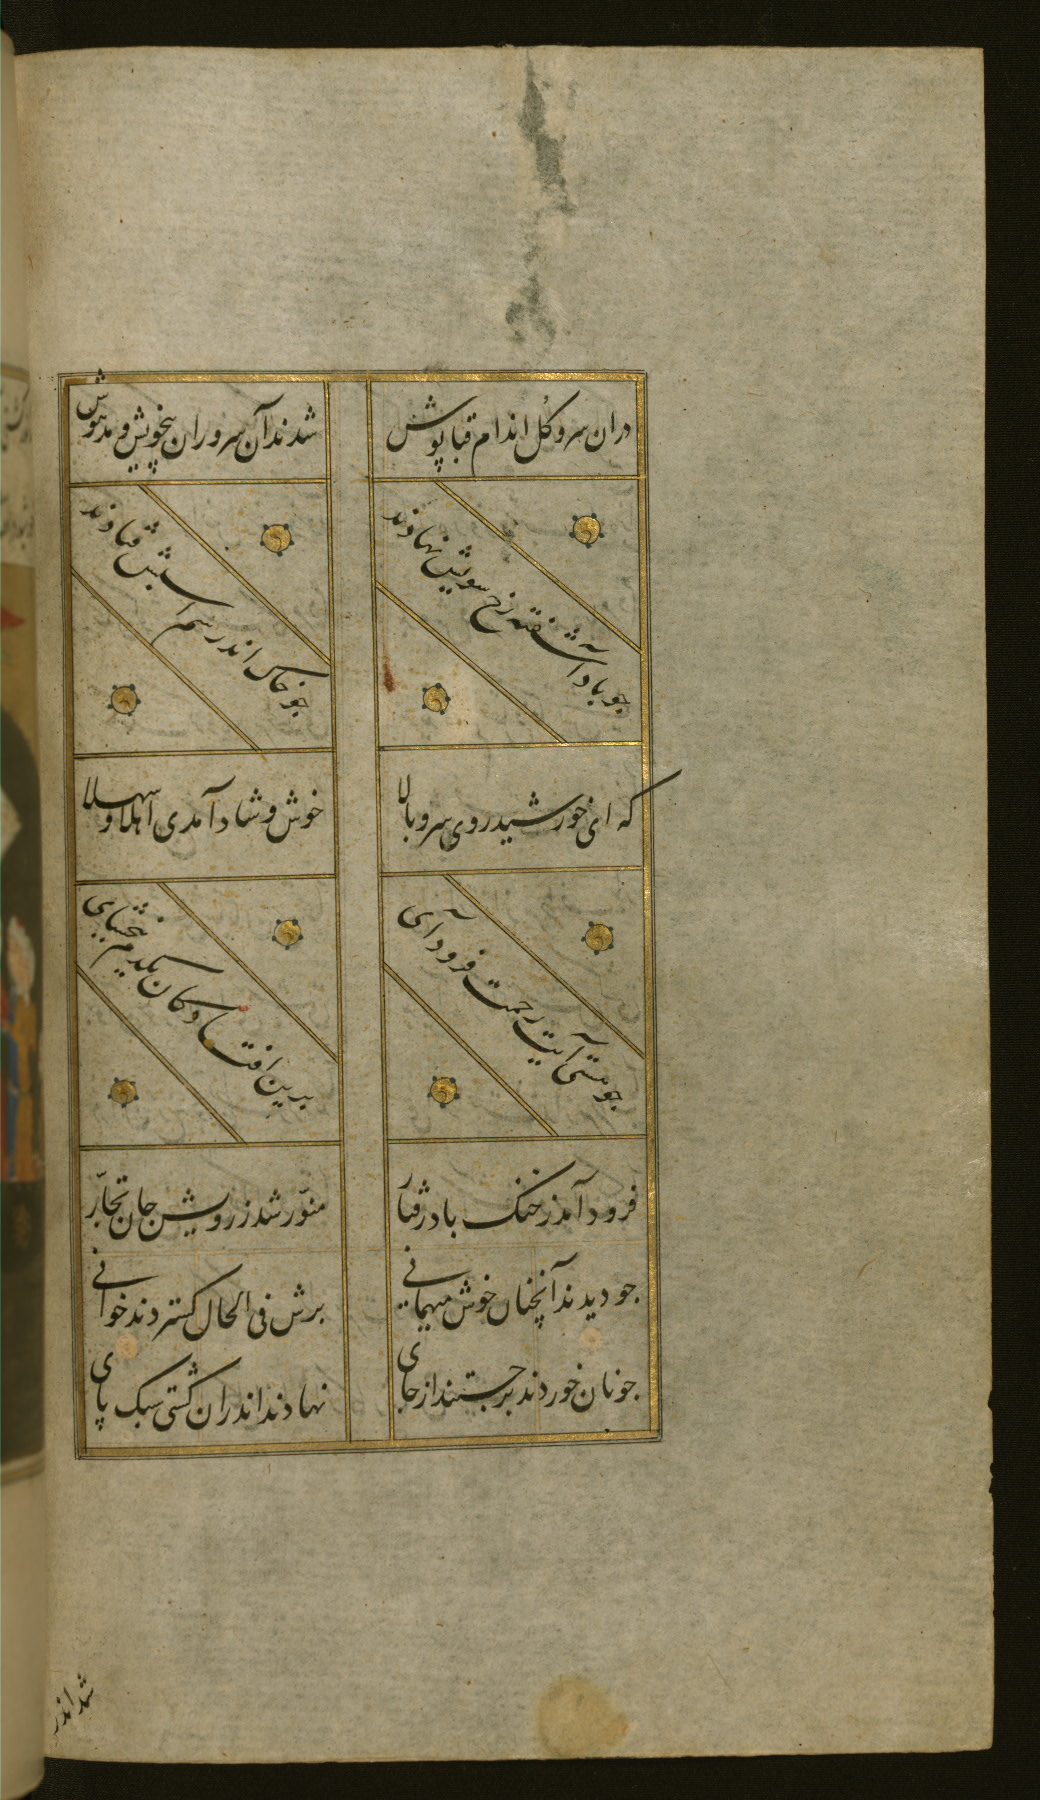 دران سرو گل اندام قباپوش
شدند آن سروران بیخویش و مدهوش
جو باد آشفته رخ سویش نهادند
جو خاک اندر سم اسبش فتادند
که ای خورشید روی سرو بالا
خوش و شاد آمدی اهلا و سهلا
جو هستی آیت رحمت فرود آی
برین افتادکان یکدم ببخشای
فرود آمد ز خنک باد رفتار
منور شد ز رویش جان تجار
جو دیدند آنچنان خوش میهمانی
برش فی الحال کستردند خوانی
جو نان خوردند برجستند از جای
نهادند اندران کشتی سبک پای
شد اندر